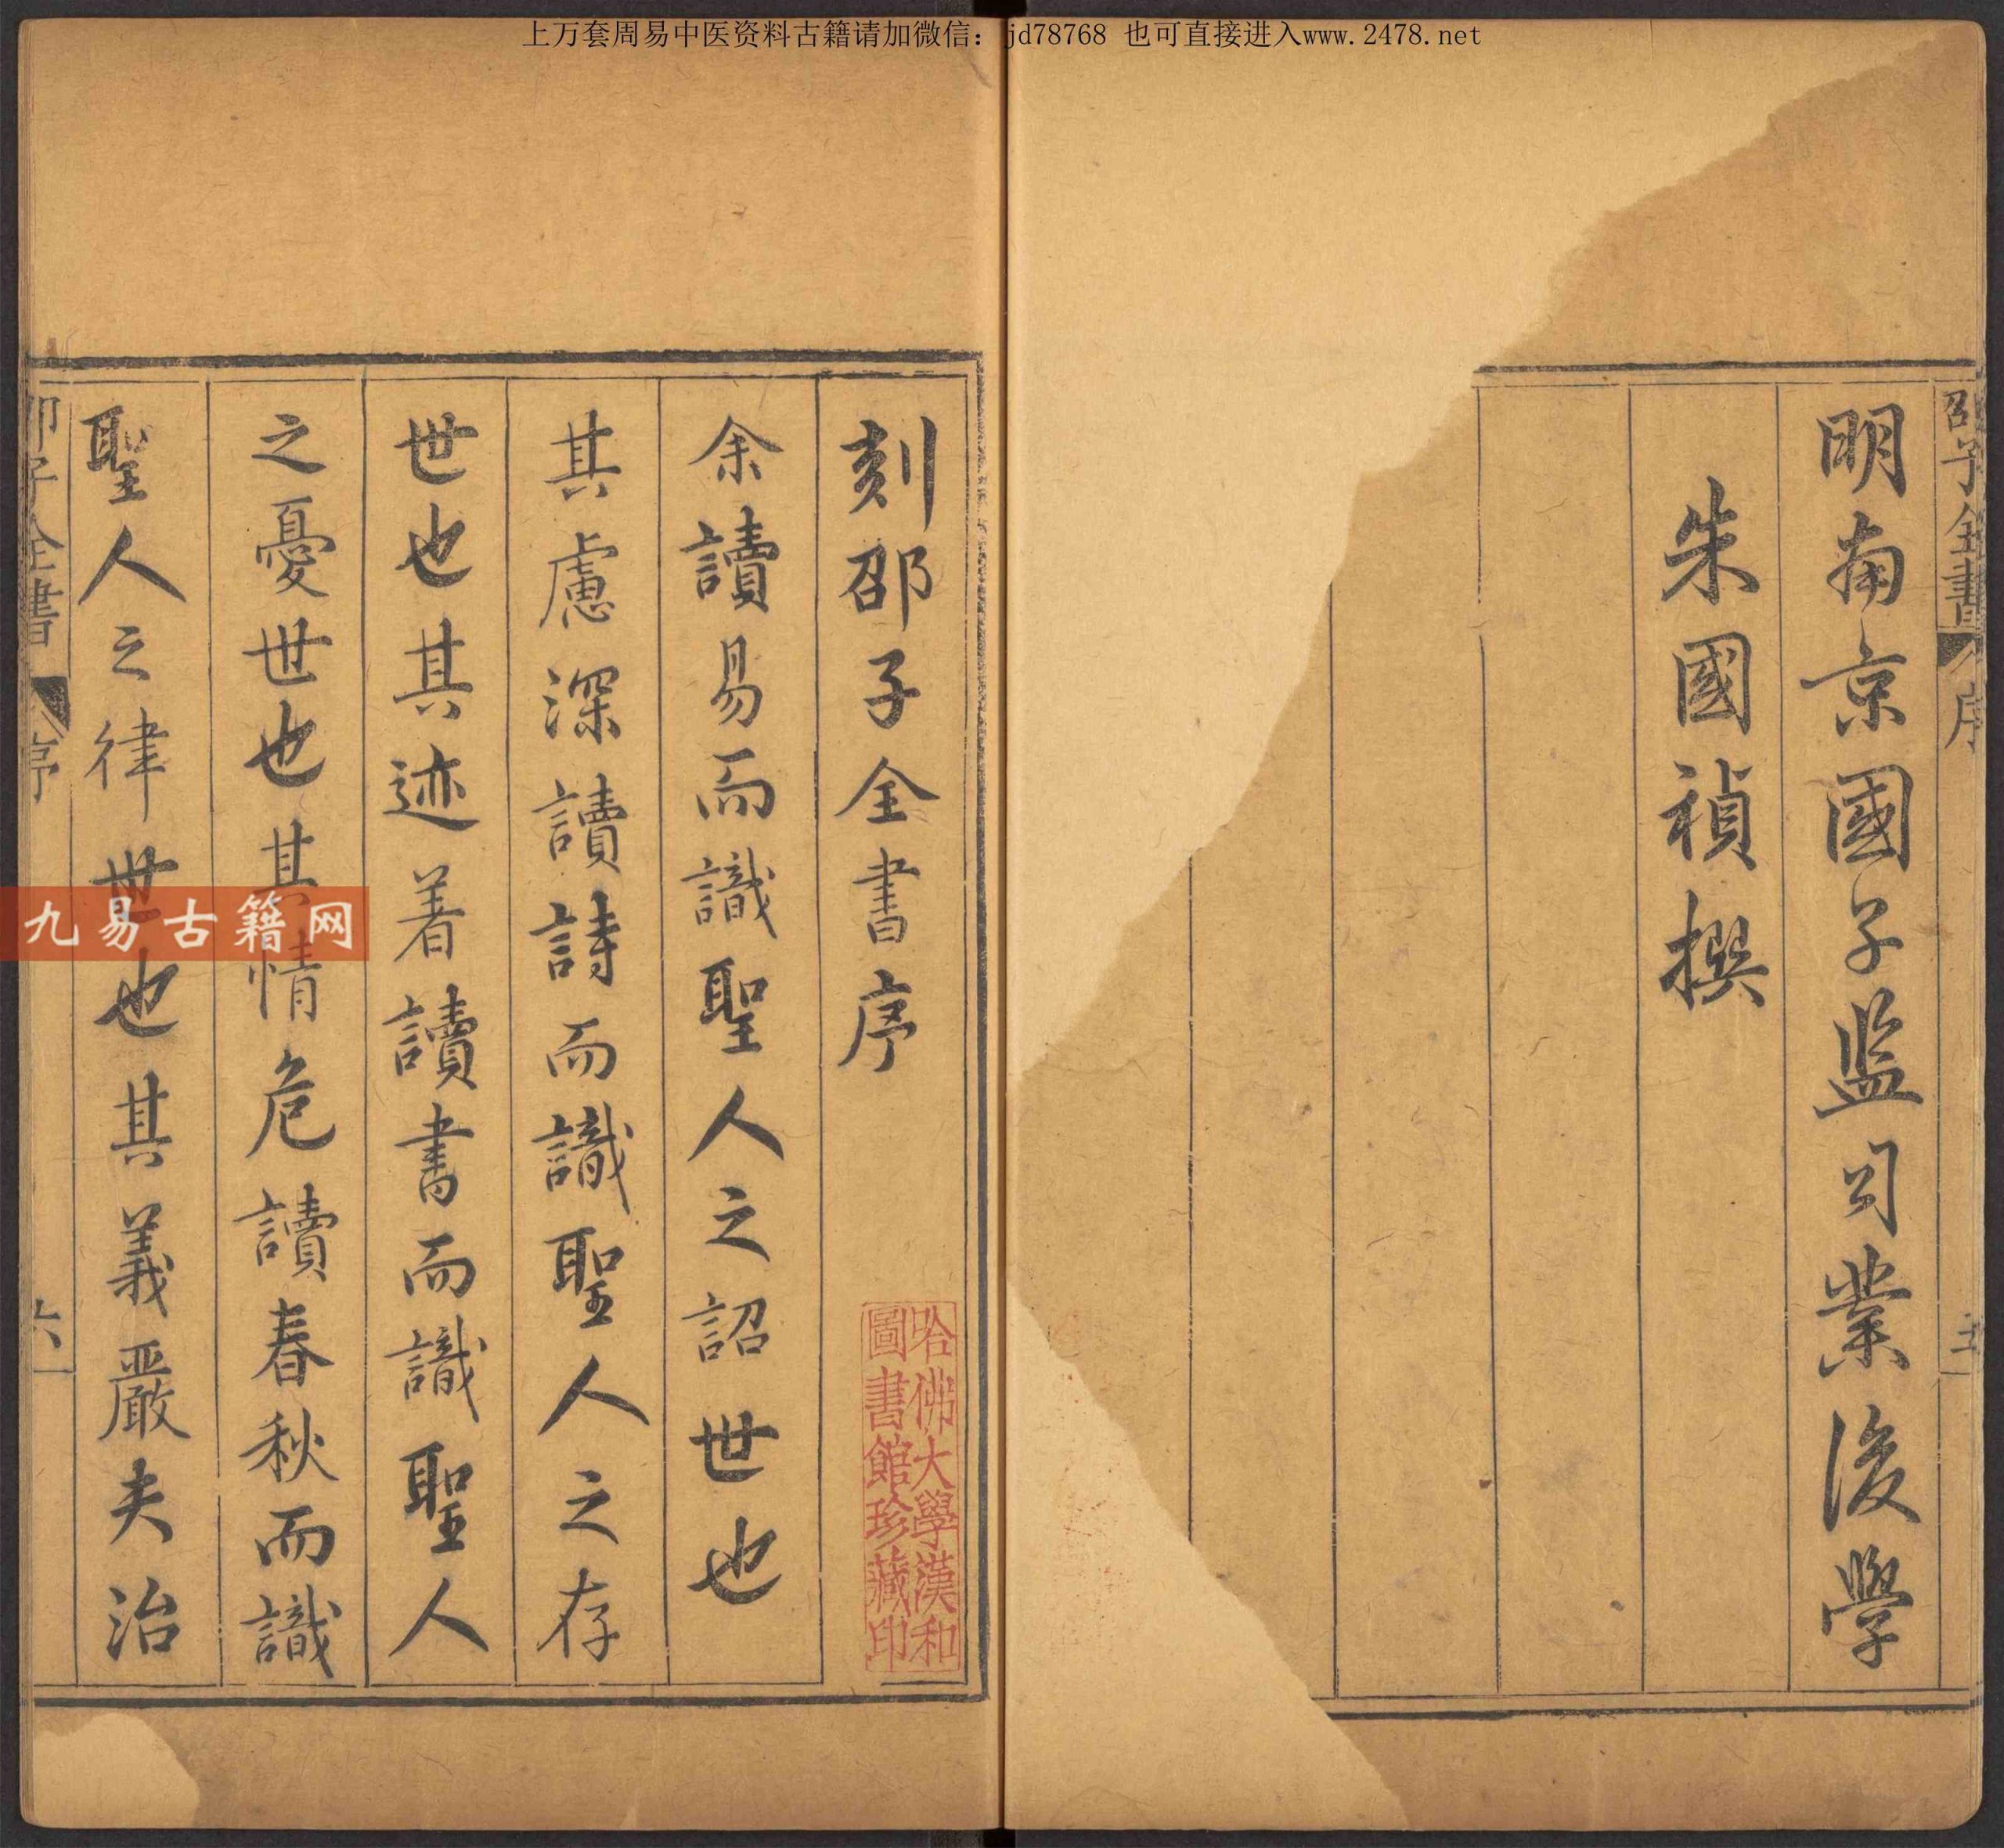 上万套周易中医资料古籍请加微信：jd78768 也可直接进入www.2478.net
邵子全書 序
五
明南京國子監司業後學
朱國禎撰
刻邵子全書序
余讀易而識聖人之詔世也
其慮深讀詩而識聖人之存
世也其迹着讀書而識聖人
之憂世也其情危讀春秋而識
聖人之律世也其義嚴夫治
邵子全書 序
六
哈佛大學漢和
圖書館珍藏印
九易古籍网